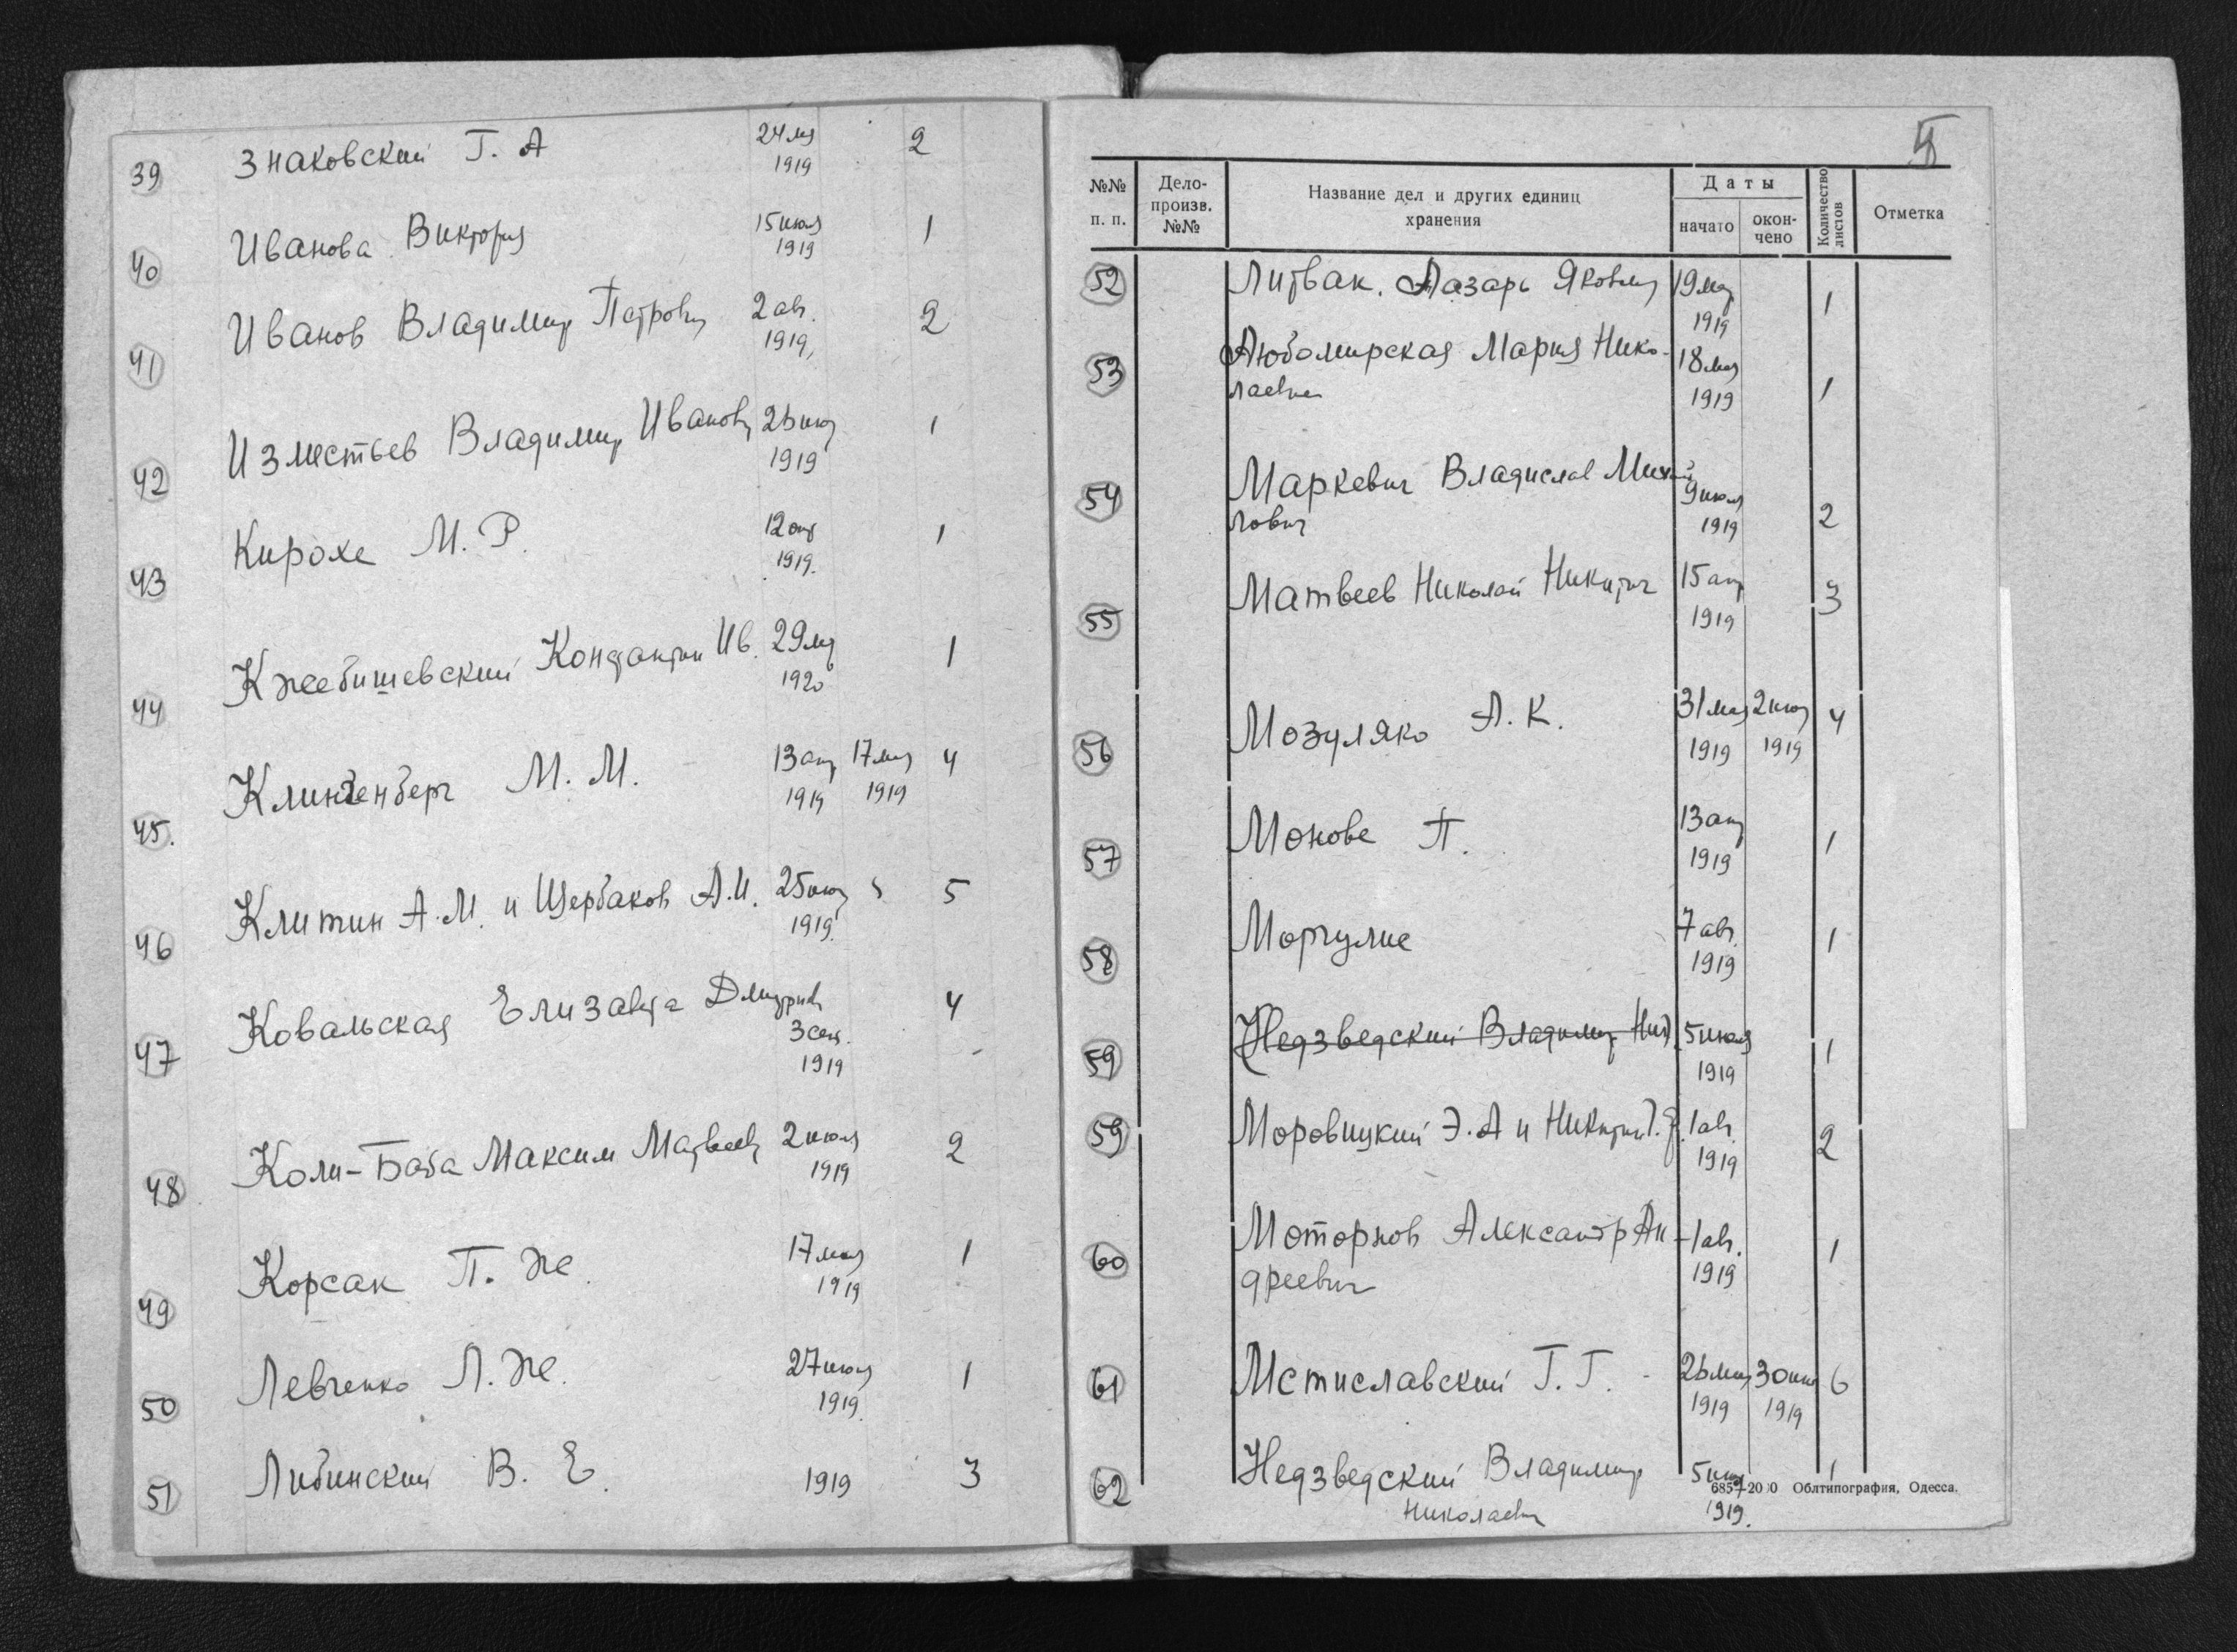 39 Знаковский Г. А 24 мая 2
1919
40 Иванова Виктория 15 июля 1
1919
41 Иванов Владимир Петрович 2 авг. 2
1919
42 Изместьев Владимир Иванович 26 июля 1
1919
43 Кирохе М. Р. 12 апр 1
1919.
44 Кжебишевский Константин Ив. 29 мая 1
1920
45. Клингенберг М. М. 13 апр 17 мая 4
1919 1919
46 Клитин А. М. и Щербаков А. И. 25 июля 5
1919.
47 Ковальская Елизавета Дмитриев 4
3 сен.
1919
48 Коли-Баба Максим Матвеев 2 июля 2
1919
49 Корсак П. Же. 17 мая 1
1919
50 Левченко Л. Же. 27 июля 1
1919.
51 Либинский В. Е. 1919 3
№№ п. п.
Дело-произв. №№
Название дел и других единиц хранения
Даты
начато
окон-чено
Количество листов
Отметка
52 Литвак. Лазарь Яковлев 19 мая 1
1919
53 Любомирская Мария Нико- 18 мая 1
лаевна 1919
54 Маркевич Владислав Михай 9 июля 2
лович 1919
55 Матвеев Николай Никитич 15 апр 3
1919
56 Мозуляко А. К. 31 мая 2 июля 4
1919 1919
57 Монове П. 13 апр 1
1919
58 Моргулис 7 авг. 1
1919
59 Недзведский Владимир Ник. 5 июля 1
1919
59 Моровицкий Э. А и Никитин 1 авг. 2
1919
60 Моторнов Александр Ан- 1 авг. 1
дреевич 1919
61 Мстиславский Г. Г. 26 мая 30 июня 6
1919 1919
62 Недзведский Владимир 5 июля 1
Николаевич 1919.
Облтипография, Одесса.